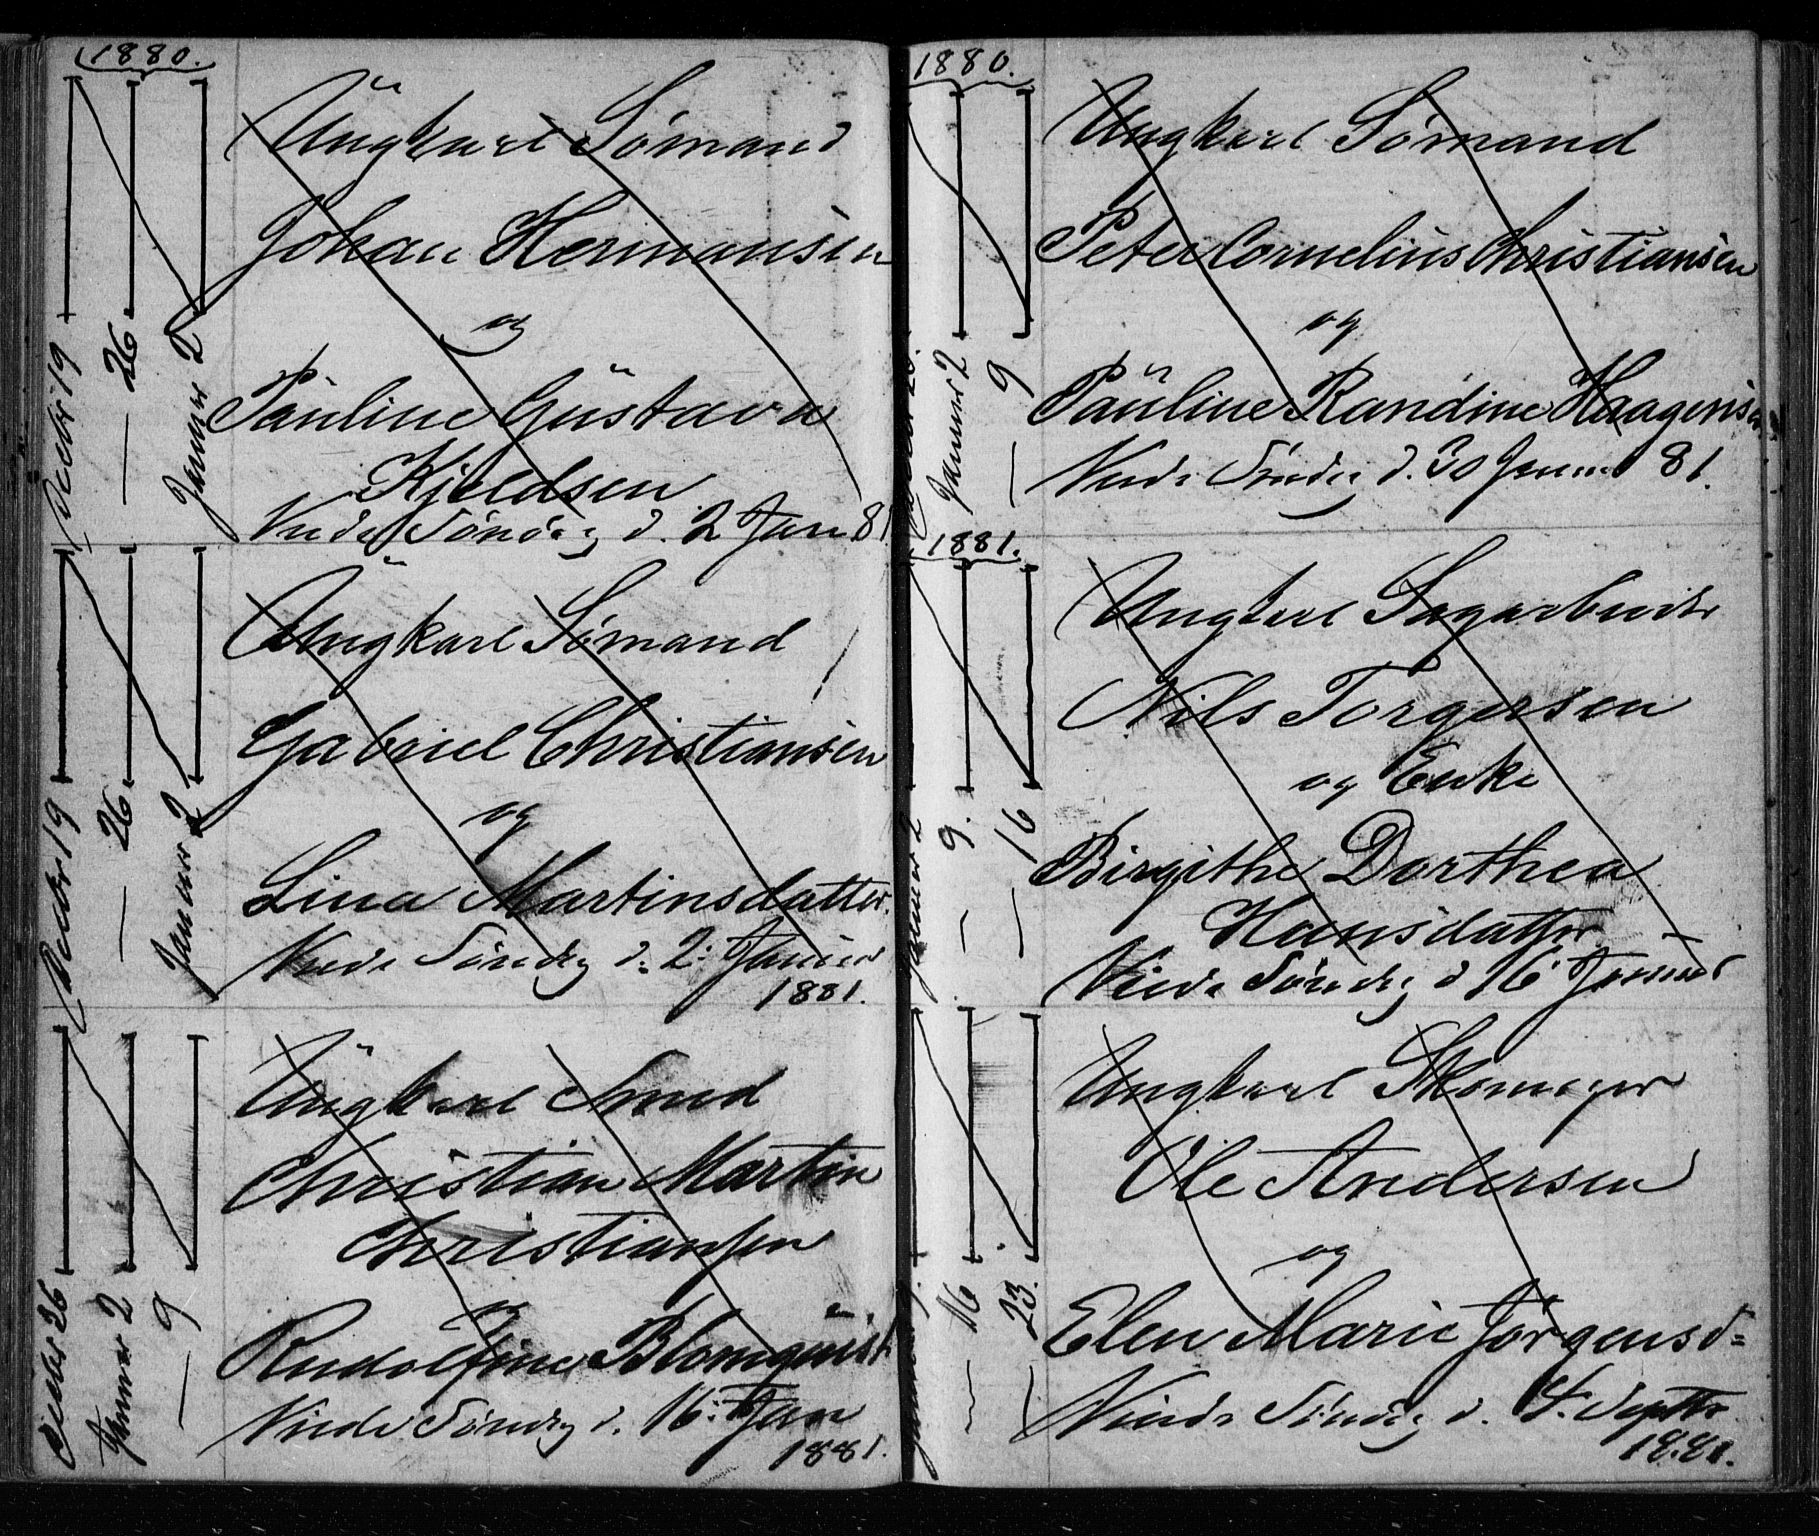 1880.
Decbr 19
— 26
Januar 2
Ungkarl Sømand
Johan Hermansen
og
Pauline Gustava
Kjeldsen
Viede Søndag d. 2 Jan 81
Decbr 19
— 26
Januar 2
Ungkarl Sømand
Gabriel Christiansen
og
Lina Martinsdatter.
Viede Søndag d. 2. Januar
1881.
Decbr 26
Januar 2
— 9
Ungkarl Smed
Christian Martin
Christiansen
og
Rudolfine Blomquist
Viede Søndag d. 16. Jan
1881.
1880.
Januar 2
— 9
Ungkarl Sømand
Peter Cornelius Christiansen
og
Pauline Randine Haagens
Viede Søndag d. 30 Januar 81.
1881.
Januar 2
— 9.
— 16
Ungkarl Sagarbeider
Nils Torgersen
og Enke
Birgithe Dorthea
Hansdatter
Viede Søndag d 16 Januar
— 16
— 23.
Ungkarl Skomager
Ole Andersen
og
Elen Marie Jørgensd=
Viede Søndag d. 4. Septbr
1881.